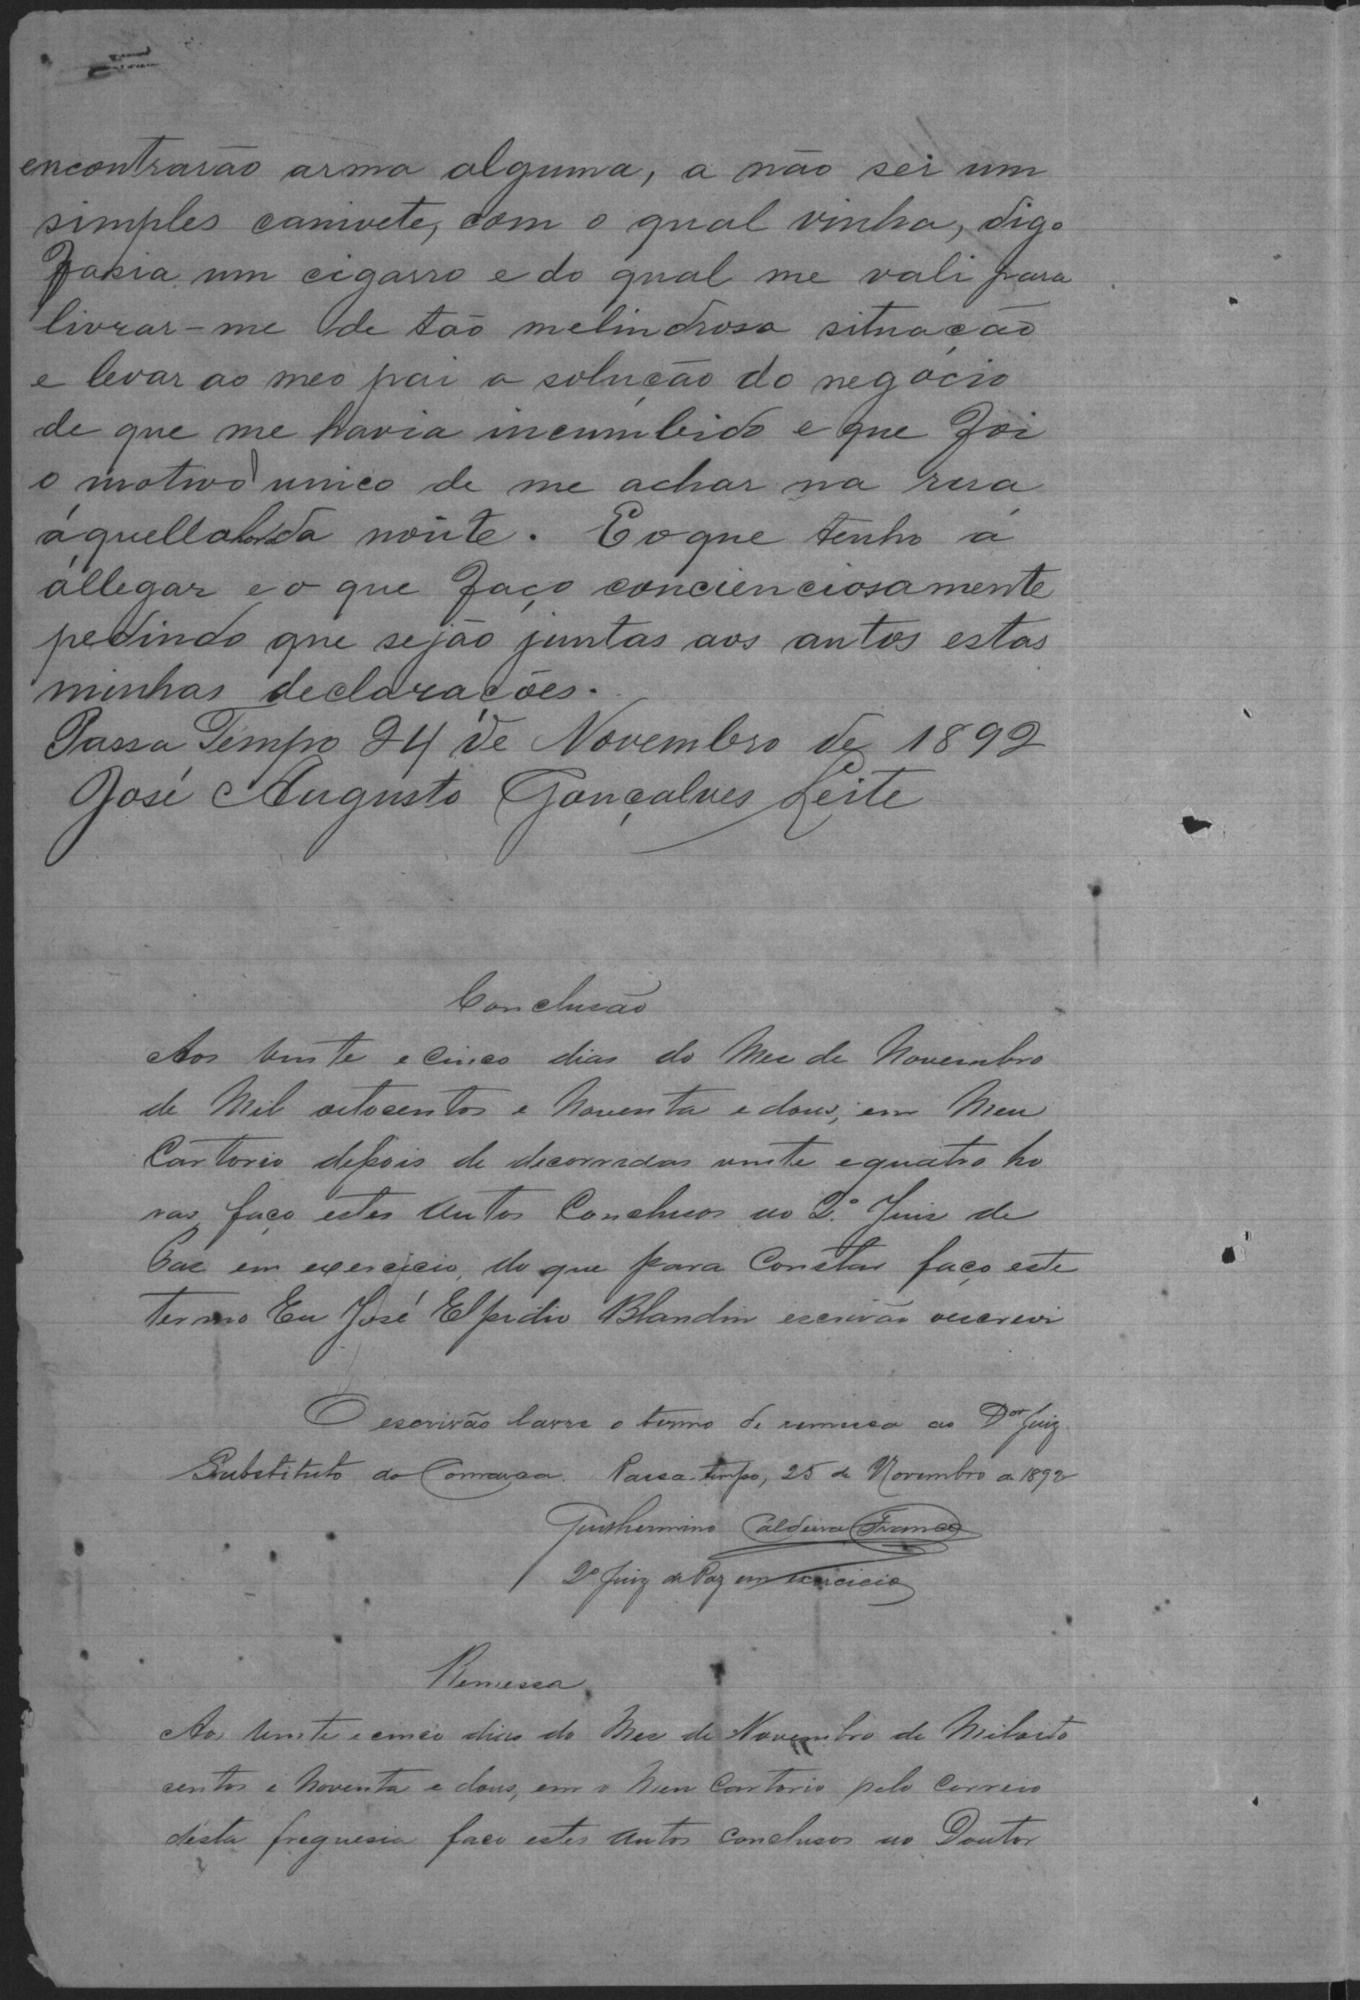 encontrarão arma alguma, a não ser um
simples canivete, com o qual vinha, digo
fasia um cigarro e do qual me vali para
livrar-me de tão melindrosa situação
e levar ao meo pai a solução do negocio
de que me havia incumbido e que foi
o motivo unico de me achar na rua
áquella hora da noite. E o que tenho a
allegar e o que faço concienciosamente
pedindo que sejão juntas aos autos estas
minhas declarações.
Passa Tempo 24 de Novembro de 1892
José Augusto Gonçalves Leite
Conclusão
Aos vinte e cinco dias do Mez de Novembro
de Mil oitocentos e Noventa e dous, em Meu
Cartorio depois de decorridas vinte e quatro ho
ras faço estes Autos Conclusos ao 2º Juiz de
Paz em exercicio, do que para Constar faço este
termo Eu José Elpidio Blandin escrivão oescrevi
O escrivão lavre o termo de remessa ao Dor Juiz
Substituto da Comarca. Passa-tempo, 25 de Novembro de 1892
Guilhermino Caldeira Franco
2º Juiz de Paz em exercicio
Remessa
Aos vinte e cinco dias do Mez de Novembro de Miloito
centos e Noventa e dous, em o Meu Cartorio pelo Correio
desta freguesia faço estes Autos conclusos ao Doutor